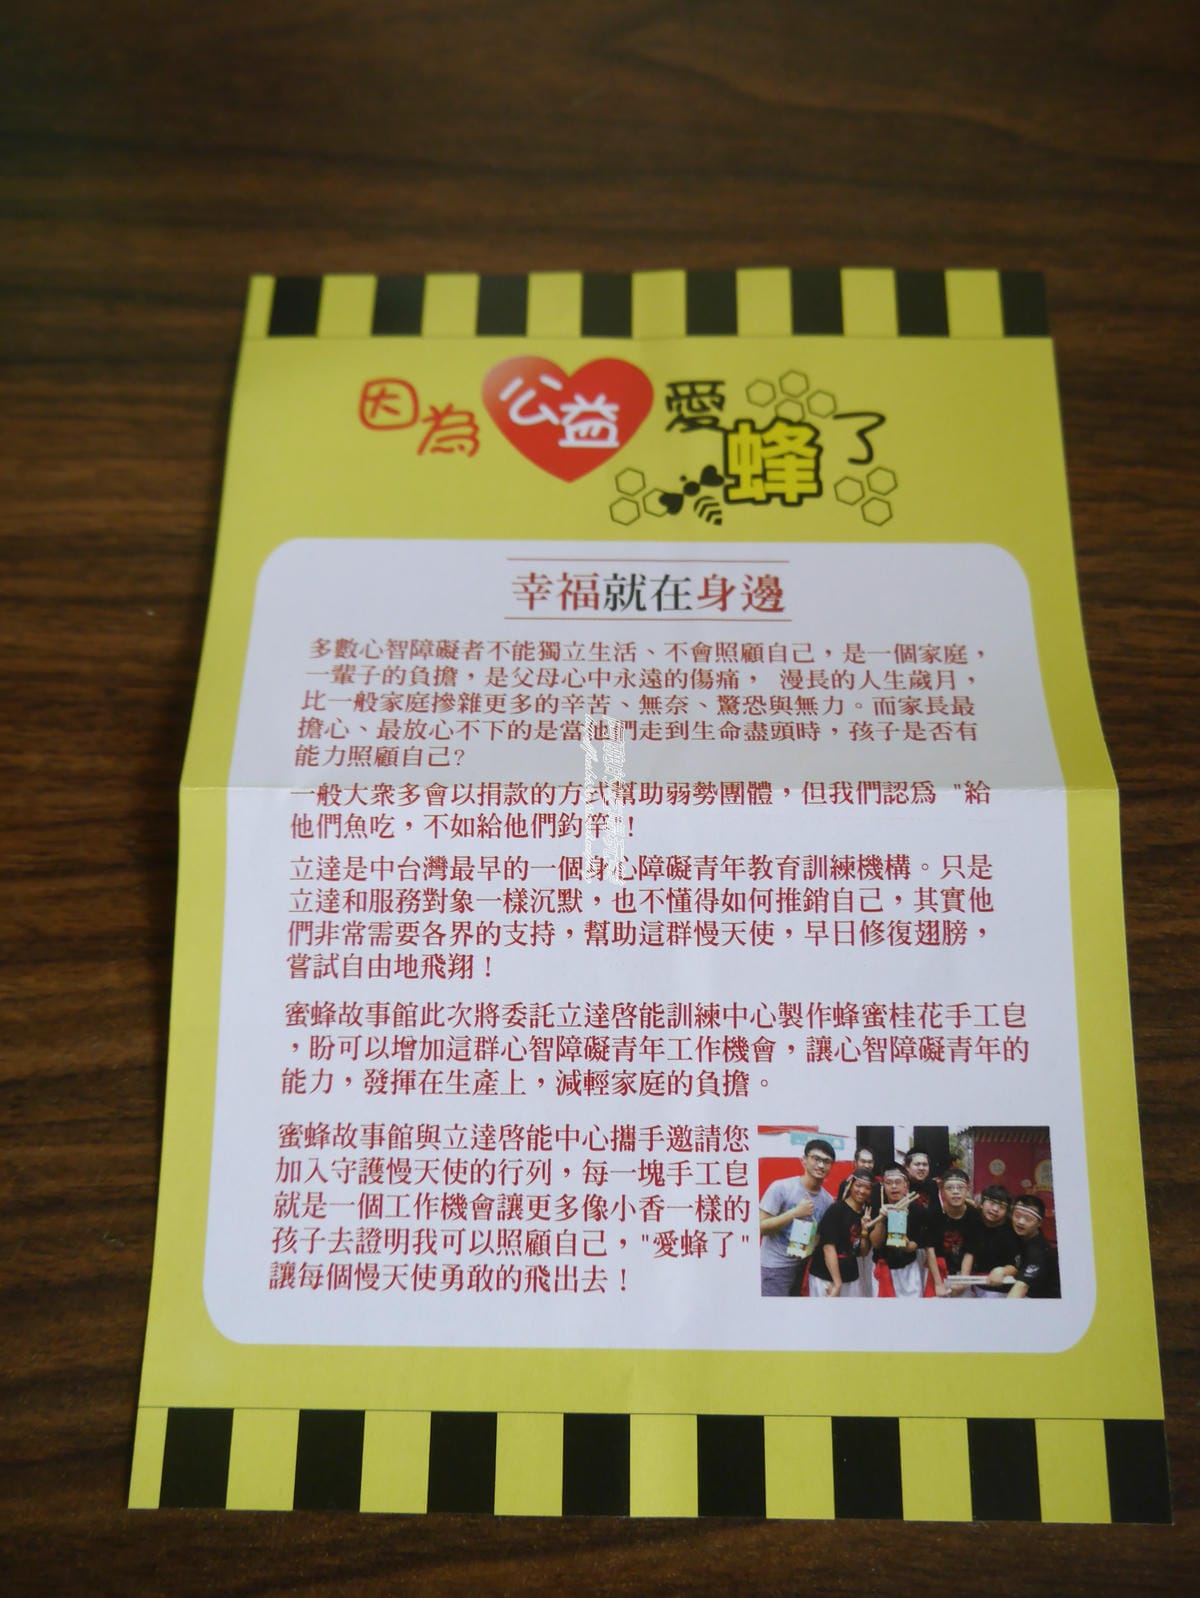 因為公益愛蜂了
幸福就在身邊
多數心智障礙者不能獨立生活、不會照顧自己，是一個家庭，
一輩子的負擔，是父母心中永遠的傷痛， 漫長的人生歲月，
比一般家庭摻雜更多的辛苦、無奈、驚恐與無力。而家長最
擔心、最放心不下的是當他們走到生命盡頭時，孩子是否有
能力照顧自己?
一般大眾多會以捐款的方式幫助弱勢團體，但我們認為 "給
他們魚吃，不如給他們釣竿"!
立達是中台灣最早的一個身心障礙青年教育訓練機構。只是
立達和服務對象一樣沉默，也不懂得如何推銷自己，其實他
們非常需要各界的支持，幫助這群慢天使，早日修復翅膀，
嘗試自由地飛翔！
蜜蜂故事館此次將委託立達啓能訓練中心製作蜂蜜桂花手工皂
，盼可以增加這群心智障礙青年工作機會，讓心智障礙青年的
能力，發揮在生產上，減輕家庭的負擔。
蜜蜂故事館與立達啓能中心攜手邀請您
加入守護慢天使的行列，每一塊手工皂
就是一個工作機會讓更多像小香一樣的
孩子去證明我可以照顧自己，"愛蜂了"
讓每個慢天使勇敢的飛出去！